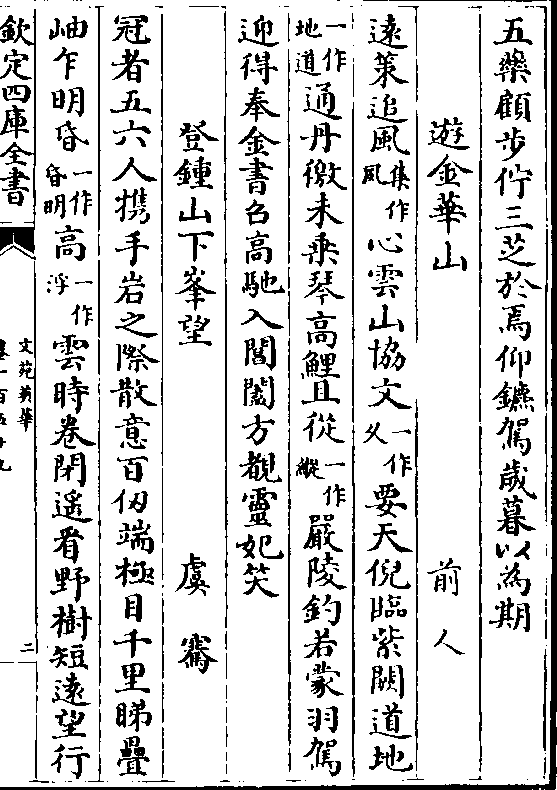 五藥顧步佇三芝於焉仰鑣駕歲暮以為期
遊金華山 前人
遠策追風集作風心雲山協文一作久要天倪臨紫闕道地
一作地道通丹徼未乘琴高鯉且從一作縱嚴陵釣若蒙羽駕
迎得奉金書召高馳入閶闔方覩靈妃笑
登鍾山下峯望 虞騫
冠者五六人携手岩之際散意百仞端極目千里睇疊
岫乍明昏一作昏明高一作浮雲時卷閉遥看野樹短遠望行
欽定四庫全書
文苑英華
卷一百五十九
二